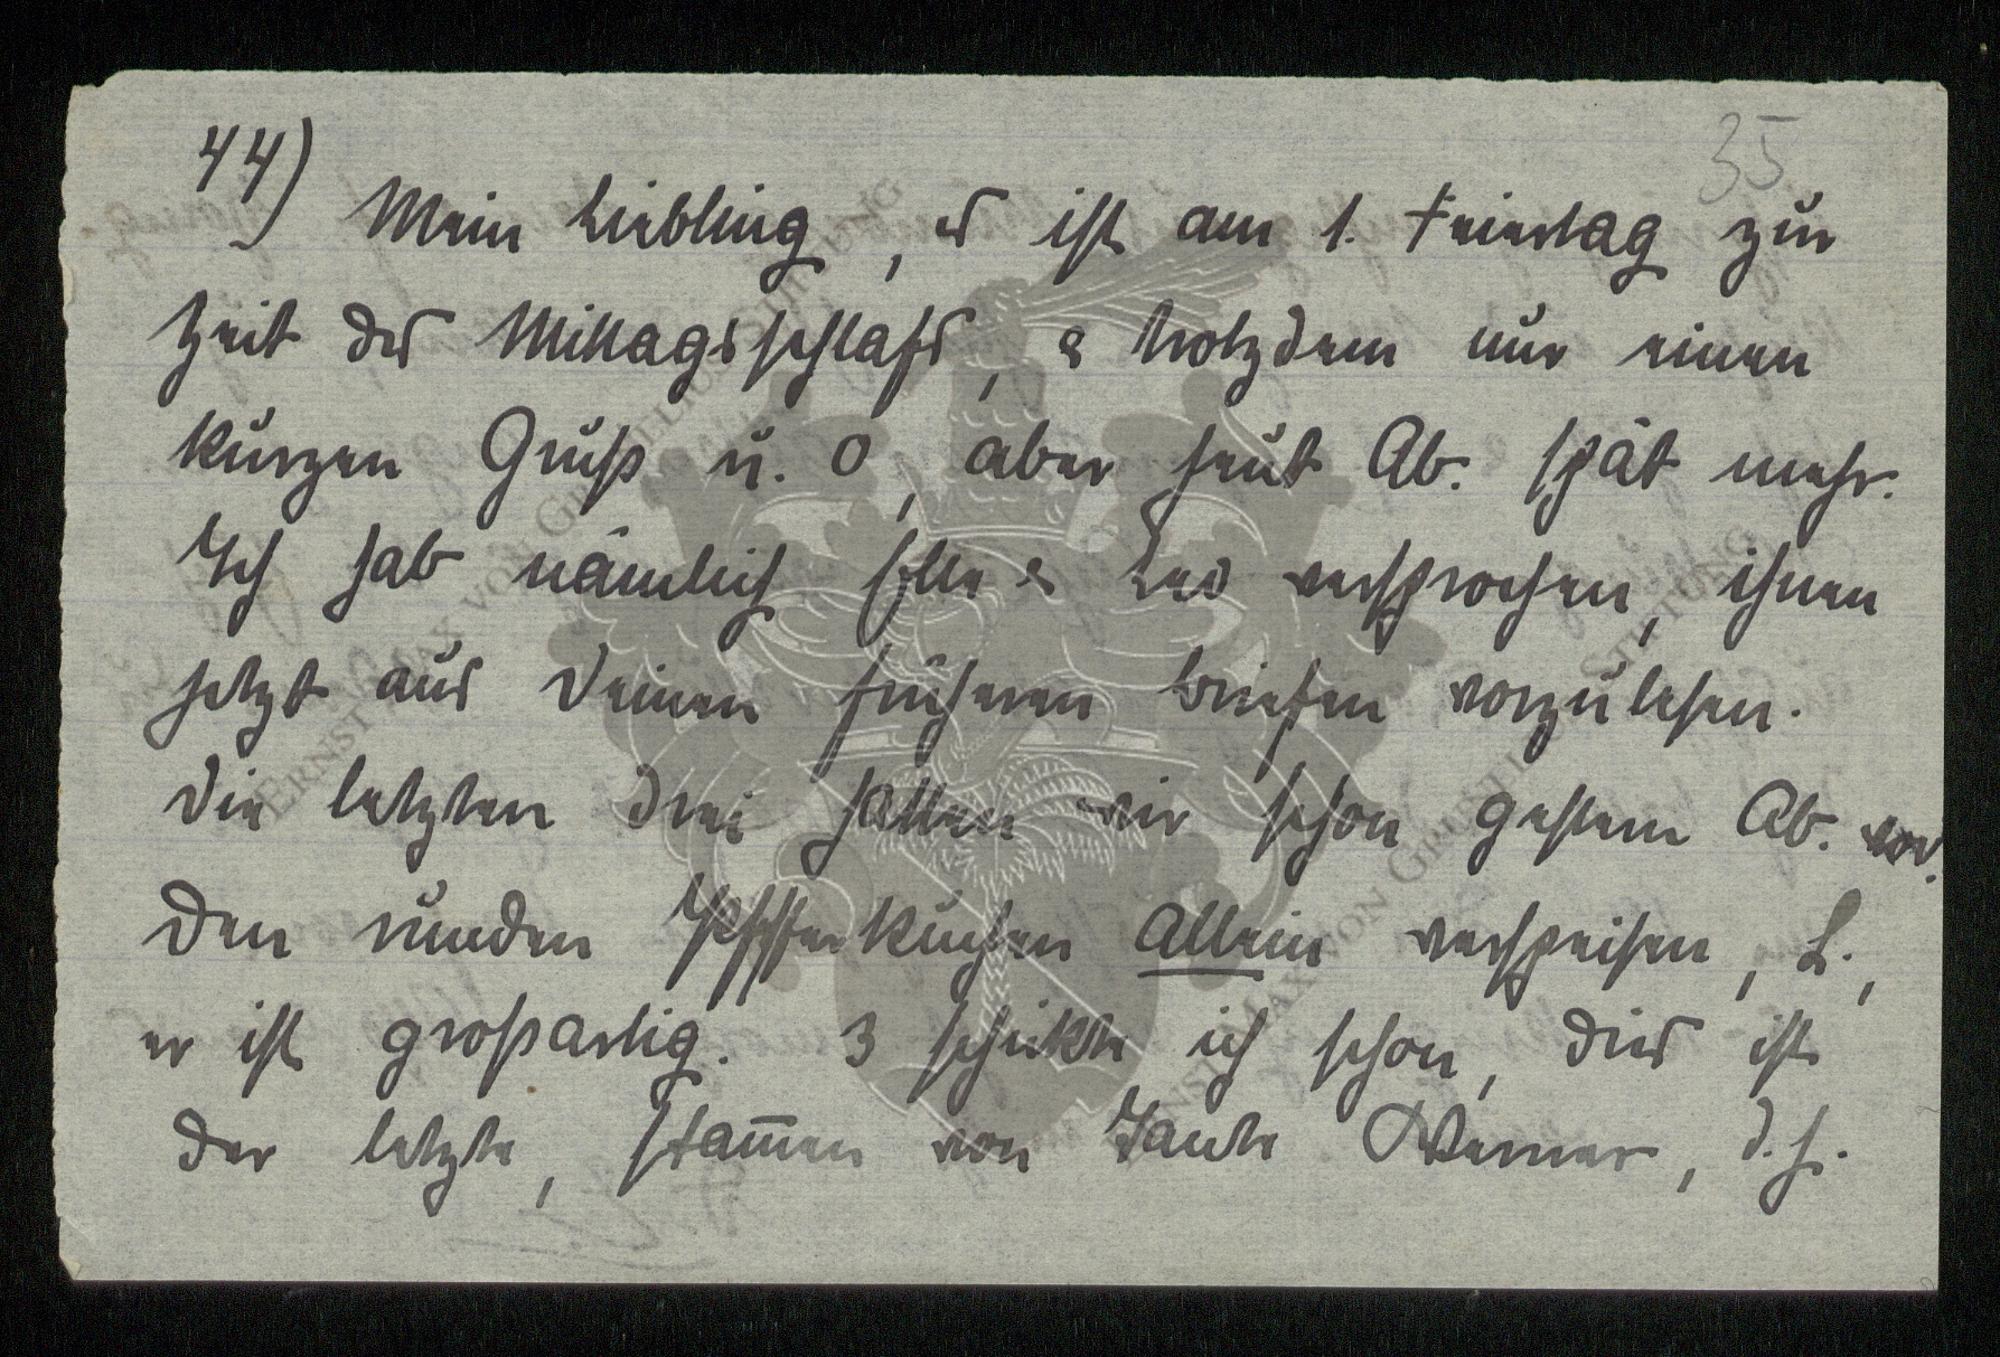 35
44) Mein Liebling, es ist am 1. Feiertag zur
Zeit des Mittagsschlafs, & trotzdem nur einen
kurzen Gruß u. O, aber heut Ab. spät mehr.
Ich hab nämlich Elle & Leo versprochen, ihnen
jetzt aus Deinen früheren Briefen vorzulesen.
Die letzten drei hatten wir schon gestern Ab. vor.
Den runden Pfefferkuchen allein verspeisen, L.,
er ist großartig. 3 schickte ich schon, dies ist
der letzte, stam̅en von Tante Werner, d. h.
ERNST MAX VON GRUNELIUS STIFTUNG
ERNST MAX VON GRUNELIUS STIFTUNG